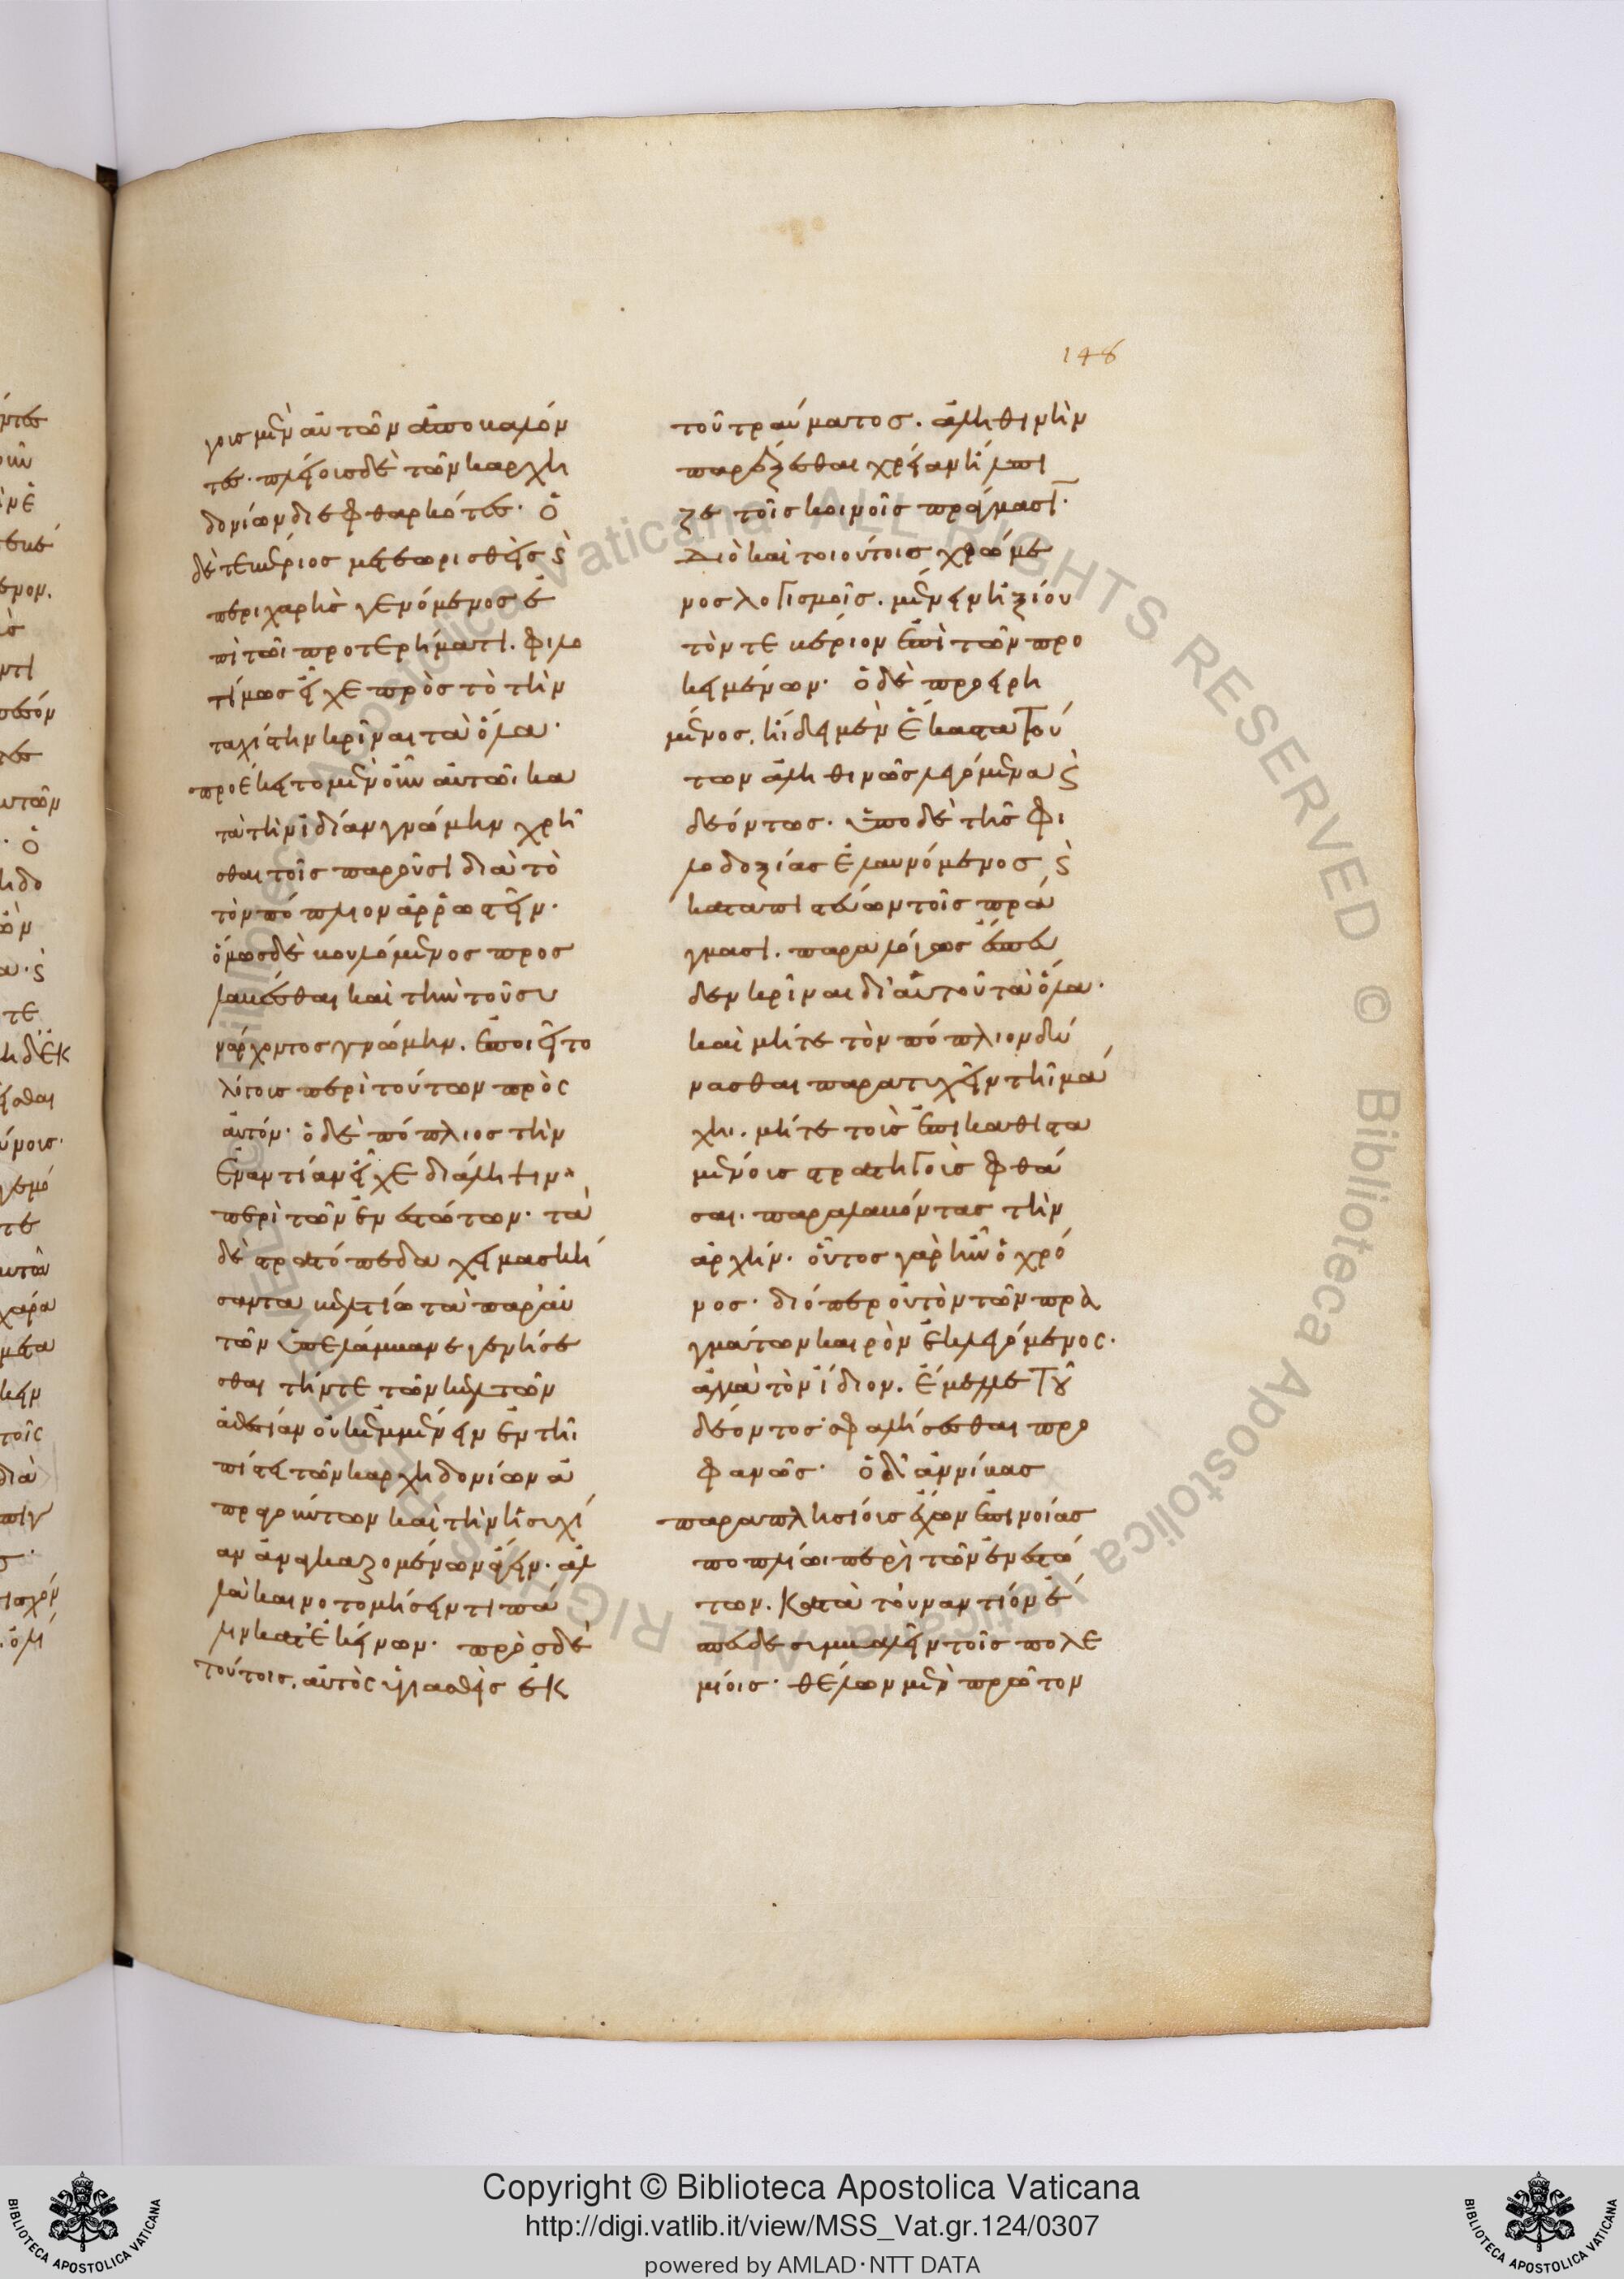 148
γοις μὲν αὑτῶν ἀποβαλόν
τες· πλείοις δὲ τῶν καρχη
δονίων διεφθαρκότες· ὁ
δὲ τεβέριος μετεωρισθεὶς ϗ
περιχαρὴς γενόμενος ἐ
πὶ τῶι προτερήματι. φιλο
τίμως εἶχε πρὸς τὸ τὴν
ταχίστην κρῖναι τὰ ὅλα·
προέκειτο μὲν οὖν αὐτῶι κα
τὰ τὴν ἰδίαν γνώμην χρῆ
σθαι τοῖς παροῦσι διὰ τὸ
τὸν πόπλιον ἀῤῥωστεῖν·
ὅμως δὲ βουλόμενος προσ
λαβέσθαι καὶ τὴν τοῦ συ
νάρχοντος γνώμην. ἐποιεῖτο
λόγοις περὶ τούτων πρὸς
αὐτόν· ὁ δὲ πόπλιος τὴν
ἐναντίαν εἶχε διάληψιν
περὶ τῶν ἐνεστώτων· τὰ
δὲ στρατόπεδα χειμασκή
σαντα βελτίω τὰ παρ' αὑ
τῶν ὑπελάμβανε γενήσε
σθαι τήν τε τῶν κελτῶν
ἀθεσίαν οὐκ ἐμμένειν ἐν τῆι
πίστει τῶν καρχηδονίων ἀ
πραγούντων καὶ τὴν ἡσυχί
αν ἀναγκαζομένων ἄγειν· ἀλ
λὰ καινοτομήσειν τι πά
λιν κατ' ἐκείνων· πρὸς δὲ
τούτοις. αὐτὸς ὑγιασθεὶς ἐκ
τοῦ τραύματος. ἀληθινὴν
παρέξεσθαι χρείαν ἤλπι
ζε τοῖς κοινοῖς πράγμασι·
Διὸ καὶ τοιούτοις χρώμε
νος λογισμοῖς. μένειν ἠξίου
τόν τε βέριον ἐπὶ τῶν προ
κειμένων· ὁ δὲ προειρη
μένος, ἤιδει μὲν ἕκαστα τού
των ἀληθινῶς λεγόμενα ϗ
δεόντως· ὑπὸ δὲ τῆς φι
λοδοξίας ἐλαυνόμενος ϗ
καταπιστεύων τοῖς πρά
γμασι. παραλόγως ἔσπευ
δεν κρῖναι δι' αὑτοῦ τὰ ὅλα·
καὶ μήτε τὸν πόπλιον δύ
νασθαι παρατυχεῖν τῆι μά
χηι. μήτε τοὺς ἐπικαθιστα
μένοις στρατηγοὺς φθά
σαι· παραλαβόντας τὴν
ἀρχήν· οὗτος γὰρ ἦν ὁ χρό
νος· διόπερ οὐ τὸν τῶν πρα
γμάτων καιρὸν ἐκλεγόμενος·
ἀλλὰ τὸν ἴδιον. ἔμελλε τοῦ
δέοντος σφαλήσεσθαι προ
φανῶς· ὁ δ' ἀννίβας
παραπλησίοις ἔχων ἐπινοίας
ποπλίωι περὶ τῶν ἐνεστώ
των. Κατὰ τοὐναντίον ἔ
σπευδε συμβαλεῖν τοῖς πολε
μίοις· θέλων μὲν πρῶτον
Copyright © Biblioteca Apostolica Vaticana
http://digi.vatlib.it/view/MSS_Vat.gr.124/0307
powered by AMLAD·NTT DATA